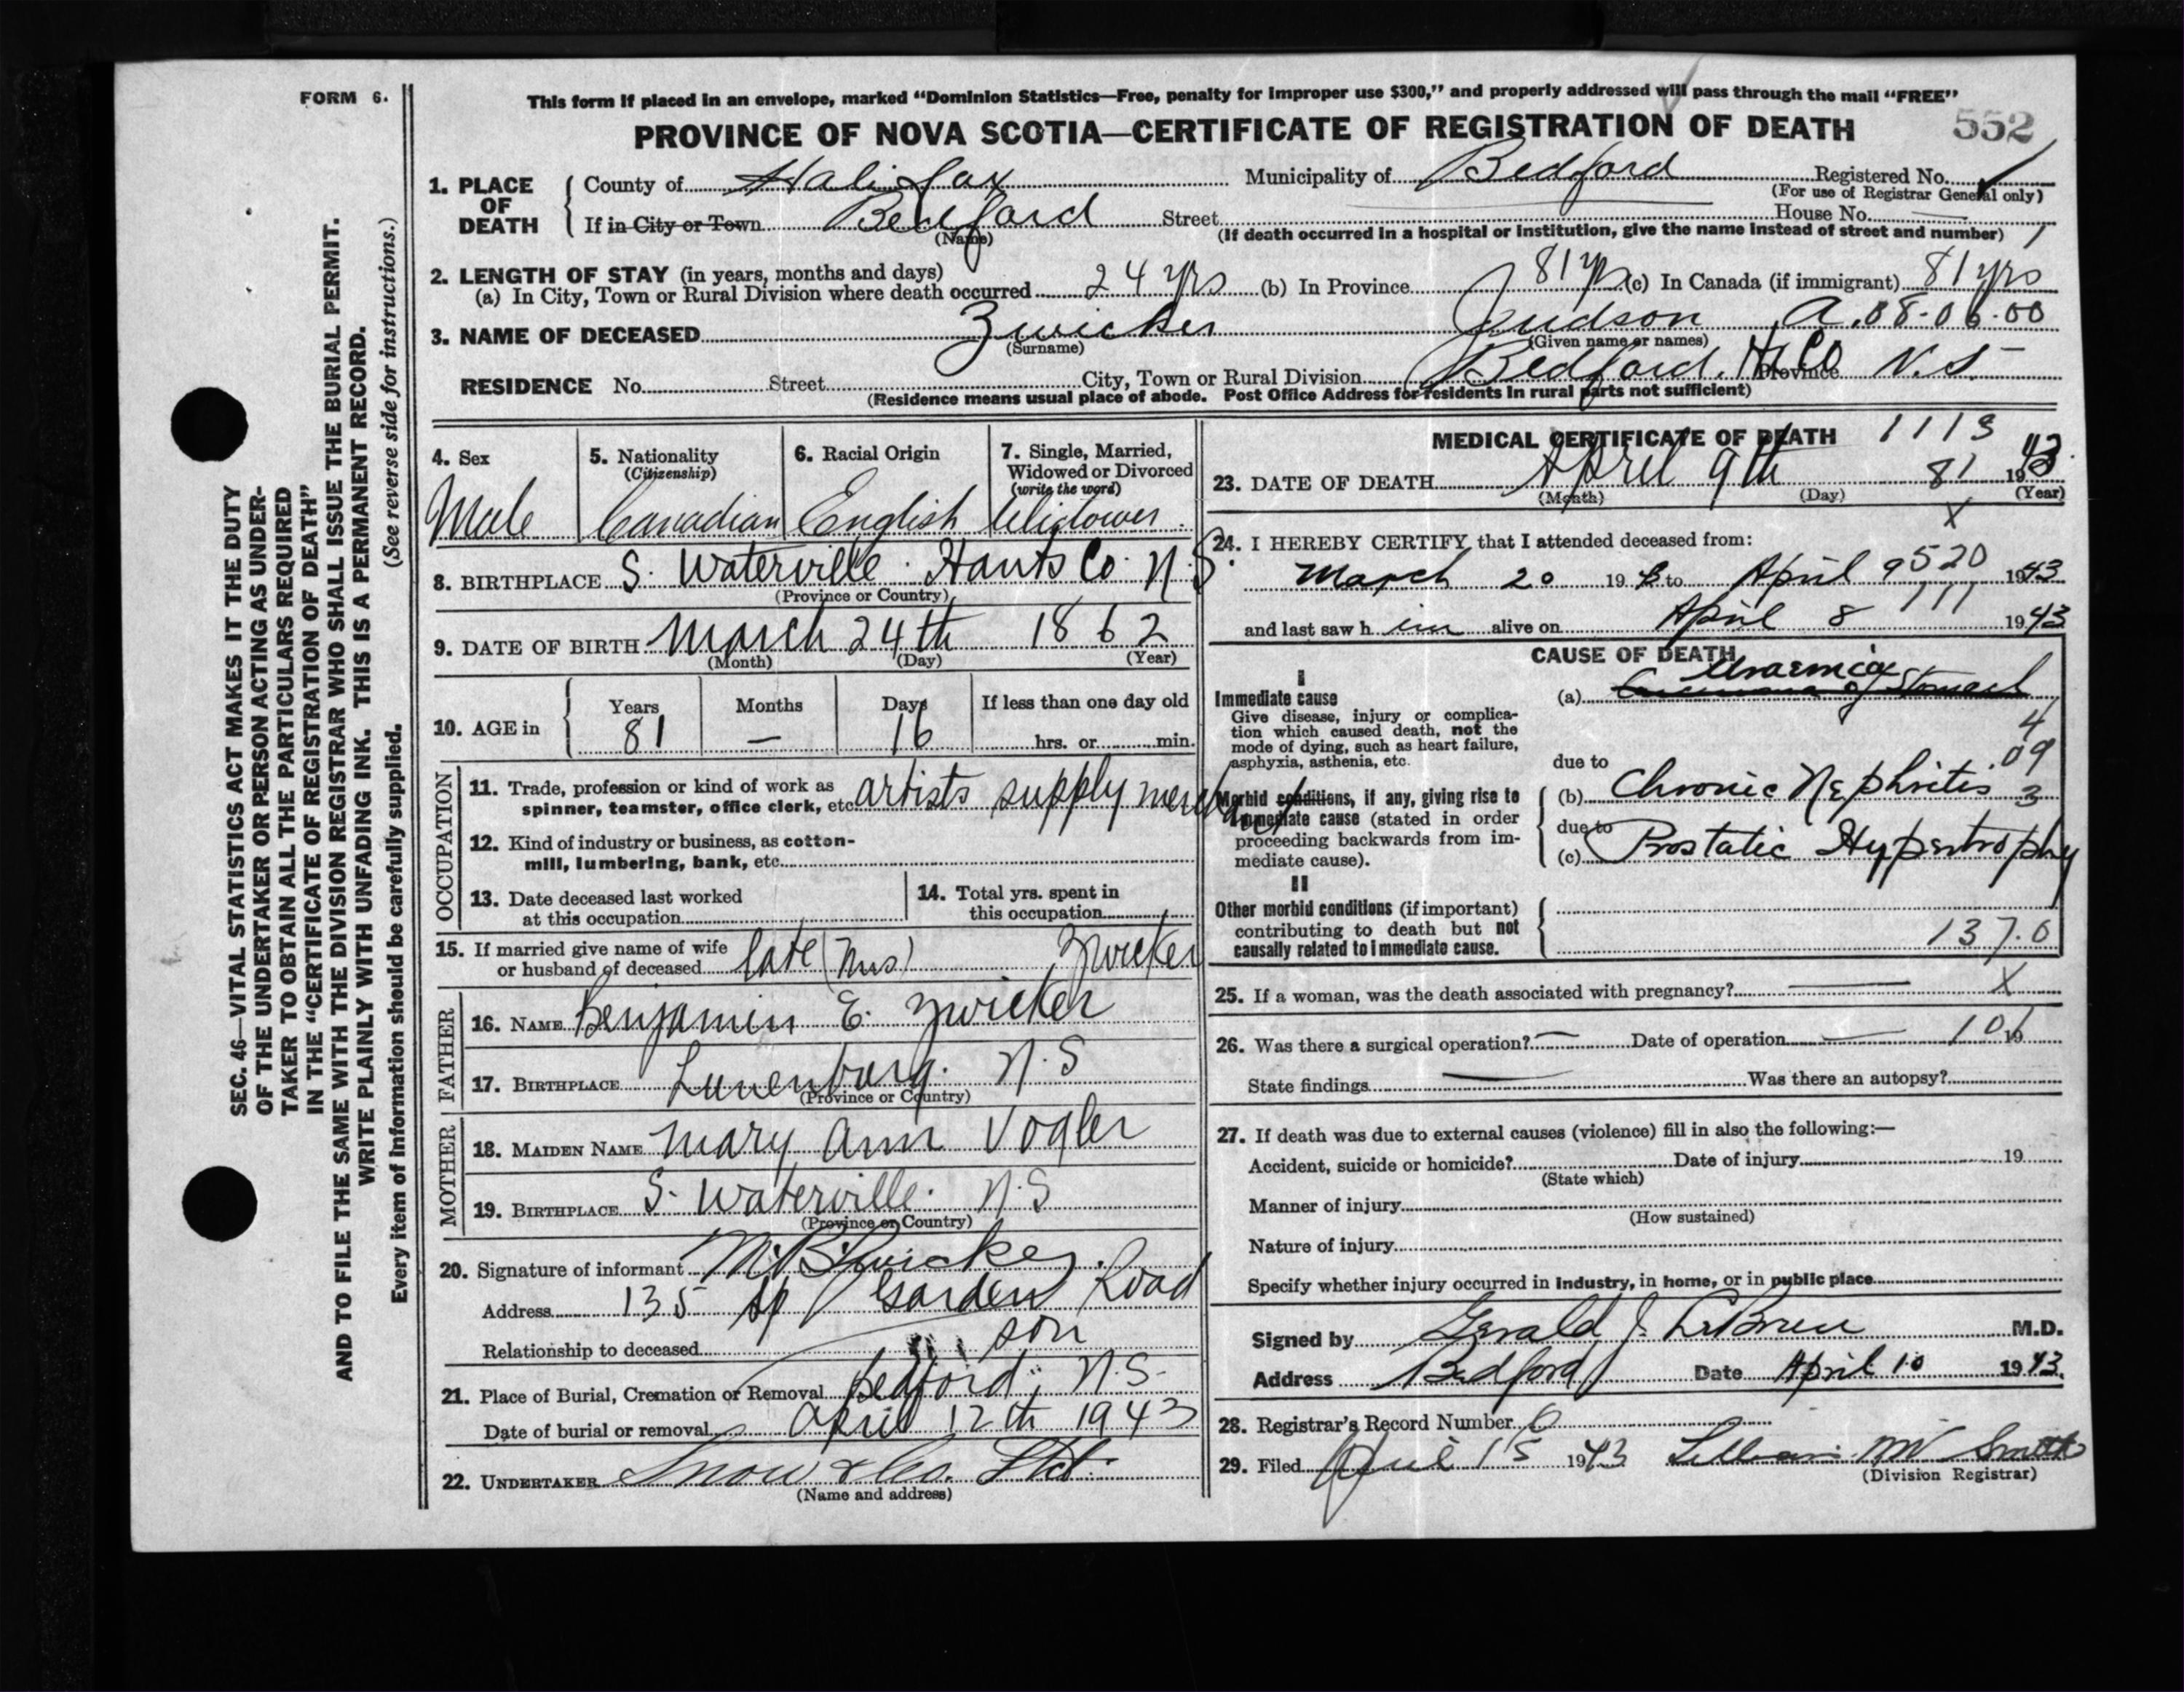 FORM 6.
This form if placed in an envelope, marked "Dominion Statistics—Free, penalty for improper use $300," and properly addressed will pass through the mail "FREE"
PROVINCE OF NOVA SCOTIA—CERTIFICATE OF REGISTRATION OF DEATH 552
1. PLACE OF DEATH
County of Halifax Municipality of Bedford Registered No.
(For use of Registrar General only)
If in City or Town Bedford Street House No.
(Name) (If death occurred in a hospital or institution, give the name instead of street and number) 1
2. LENGTH OF STAY (in years, months and days)
(a) In City, Town or Rural Division where death occurred 24 yrs (b) In Province 81 yrs (c) In Canada (if immigrant) 81 yrs
3. NAME OF DECEASED Zwicker Judson A. 08-06-00
(Surname) (Given name or names)
RESIDENCE No. Street City, Town or Rural Division Bedford. Hx Co Province N.S.
(Residence means usual place of abode. Post Office Address for residents in rural parts not sufficient)
4. Sex
Male
5. Nationality
(Citizenship)
Canadian
6. Racial Origin
English
7. Single, Married,
Widowed or Divorced
(write the word)
Widower.
8. BIRTHPLACE S. Waterville. Hants Co. N.S.
(Province or Country)
9. DATE OF BIRTH March 24th 1862
(Month) (Day) (Year)
10. AGE in
Years Months Days If less than one day old
81 — 16 hrs. or min.
OCCUPATION
11. Trade, profession or kind of work as
spinner, teamster, office clerk, etc. artists supply merchant
12. Kind of industry or business, as cotton-
mill, lumbering, bank, etc.
13. Date deceased last worked
at this occupation
14. Total yrs. spent in
this occupation
15. If married give name of wife
or husband of deceased late (Mrs) Zwicker
FATHER
16. NAME Benjamin E. Zwicker
17. BIRTHPLACE Lunenburg. N.S
(Province or Country)
MOTHER
18. MAIDEN NAME Mary Ann Vogler
19. BIRTHPLACE S. Waterville. N.S
(Province or Country)
20. Signature of informant M. B. Zwicker.
Address 135 Sp Garden Road
Relationship to deceased son
21. Place of Burial, Cremation or Removal Bedford, N.S.
Date of burial or removal April 12th 1943
22. UNDERTAKER Snow & Co. Ltd.
(Name and address)
MEDICAL CERTIFICATE OF DEATH 1113
23. DATE OF DEATH April 9th 81 1943
(Month) (Day) (Year)
X
24. I HEREBY CERTIFY that I attended deceased from:
March 20 19 to April 9 520 1943
and last saw h im alive on April 8 111 1943
CAUSE OF DEATH
I
Immediate cause
Give disease, injury or complica-
tion which caused death, not the
mode of dying, such as heart failure,
asphyxia, asthenia, etc.
Uraemia
(a) of Stomach
4
due to 09
Morbid conditions, if any, giving rise to
immediate cause (stated in order
proceeding backwards from im-
mediate cause).
(b) Chronic Nephritis 3
due to
(c) Prostatic Hypertrophy
II
Other morbid conditions (if important)
contributing to death but not
causally related to immediate cause.
137.0
25. If a woman, was the death associated with pregnancy? — X
26. Was there a surgical operation? — Date of operation — 101 19
State findings — Was there an autopsy?
27. If death was due to external causes (violence) fill in also the following:—
Accident, suicide or homicide? Date of injury 19
(State which)
Manner of injury
(How sustained)
Nature of injury
Specify whether injury occurred in industry, in home, or in public place
Signed by Gerald J. LeBrun M.D.
Address Bedford Date April 10 1943.
28. Registrar's Record Number 6
29. Filed April 15 1943 Lillian M Smith
(Division Registrar)
SEC. 46—VITAL STATISTICS ACT MAKES IT THE DUTY
OF THE UNDERTAKER OR PERSON ACTING AS UNDER-
TAKER TO OBTAIN ALL THE PARTICULARS REQUIRED
IN THE "CERTIFICATE OF REGISTRATION OF DEATH"
AND TO FILE THE SAME WITH THE DIVISION REGISTRAR WHO SHALL ISSUE THE BURIAL PERMIT.
WRITE PLAINLY WITH UNFADING INK. THIS IS A PERMANENT RECORD.
(See reverse side for instructions.)
Every item of information should be carefully supplied.